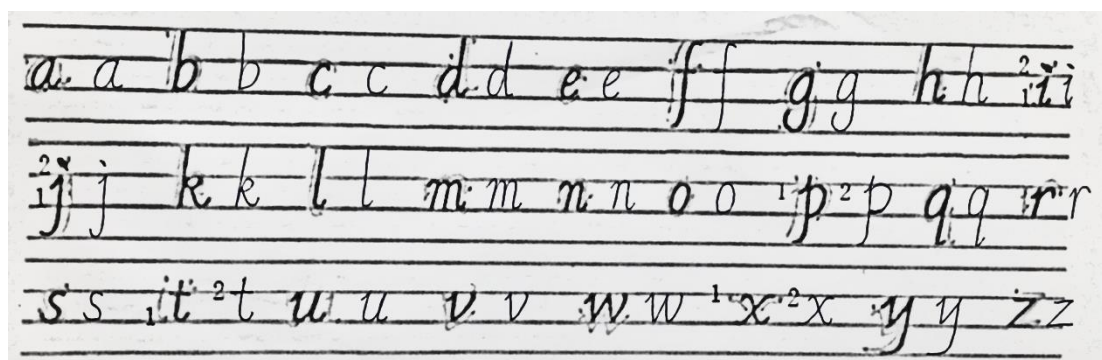 a a b b c c d d e e f f g g h h 2 1 i i
2 1 j j k k l l m m n n o o 1 p 2 p q q 1 r r
s s 1 t 2 t u u v v w w 1 x 2 x y y z z